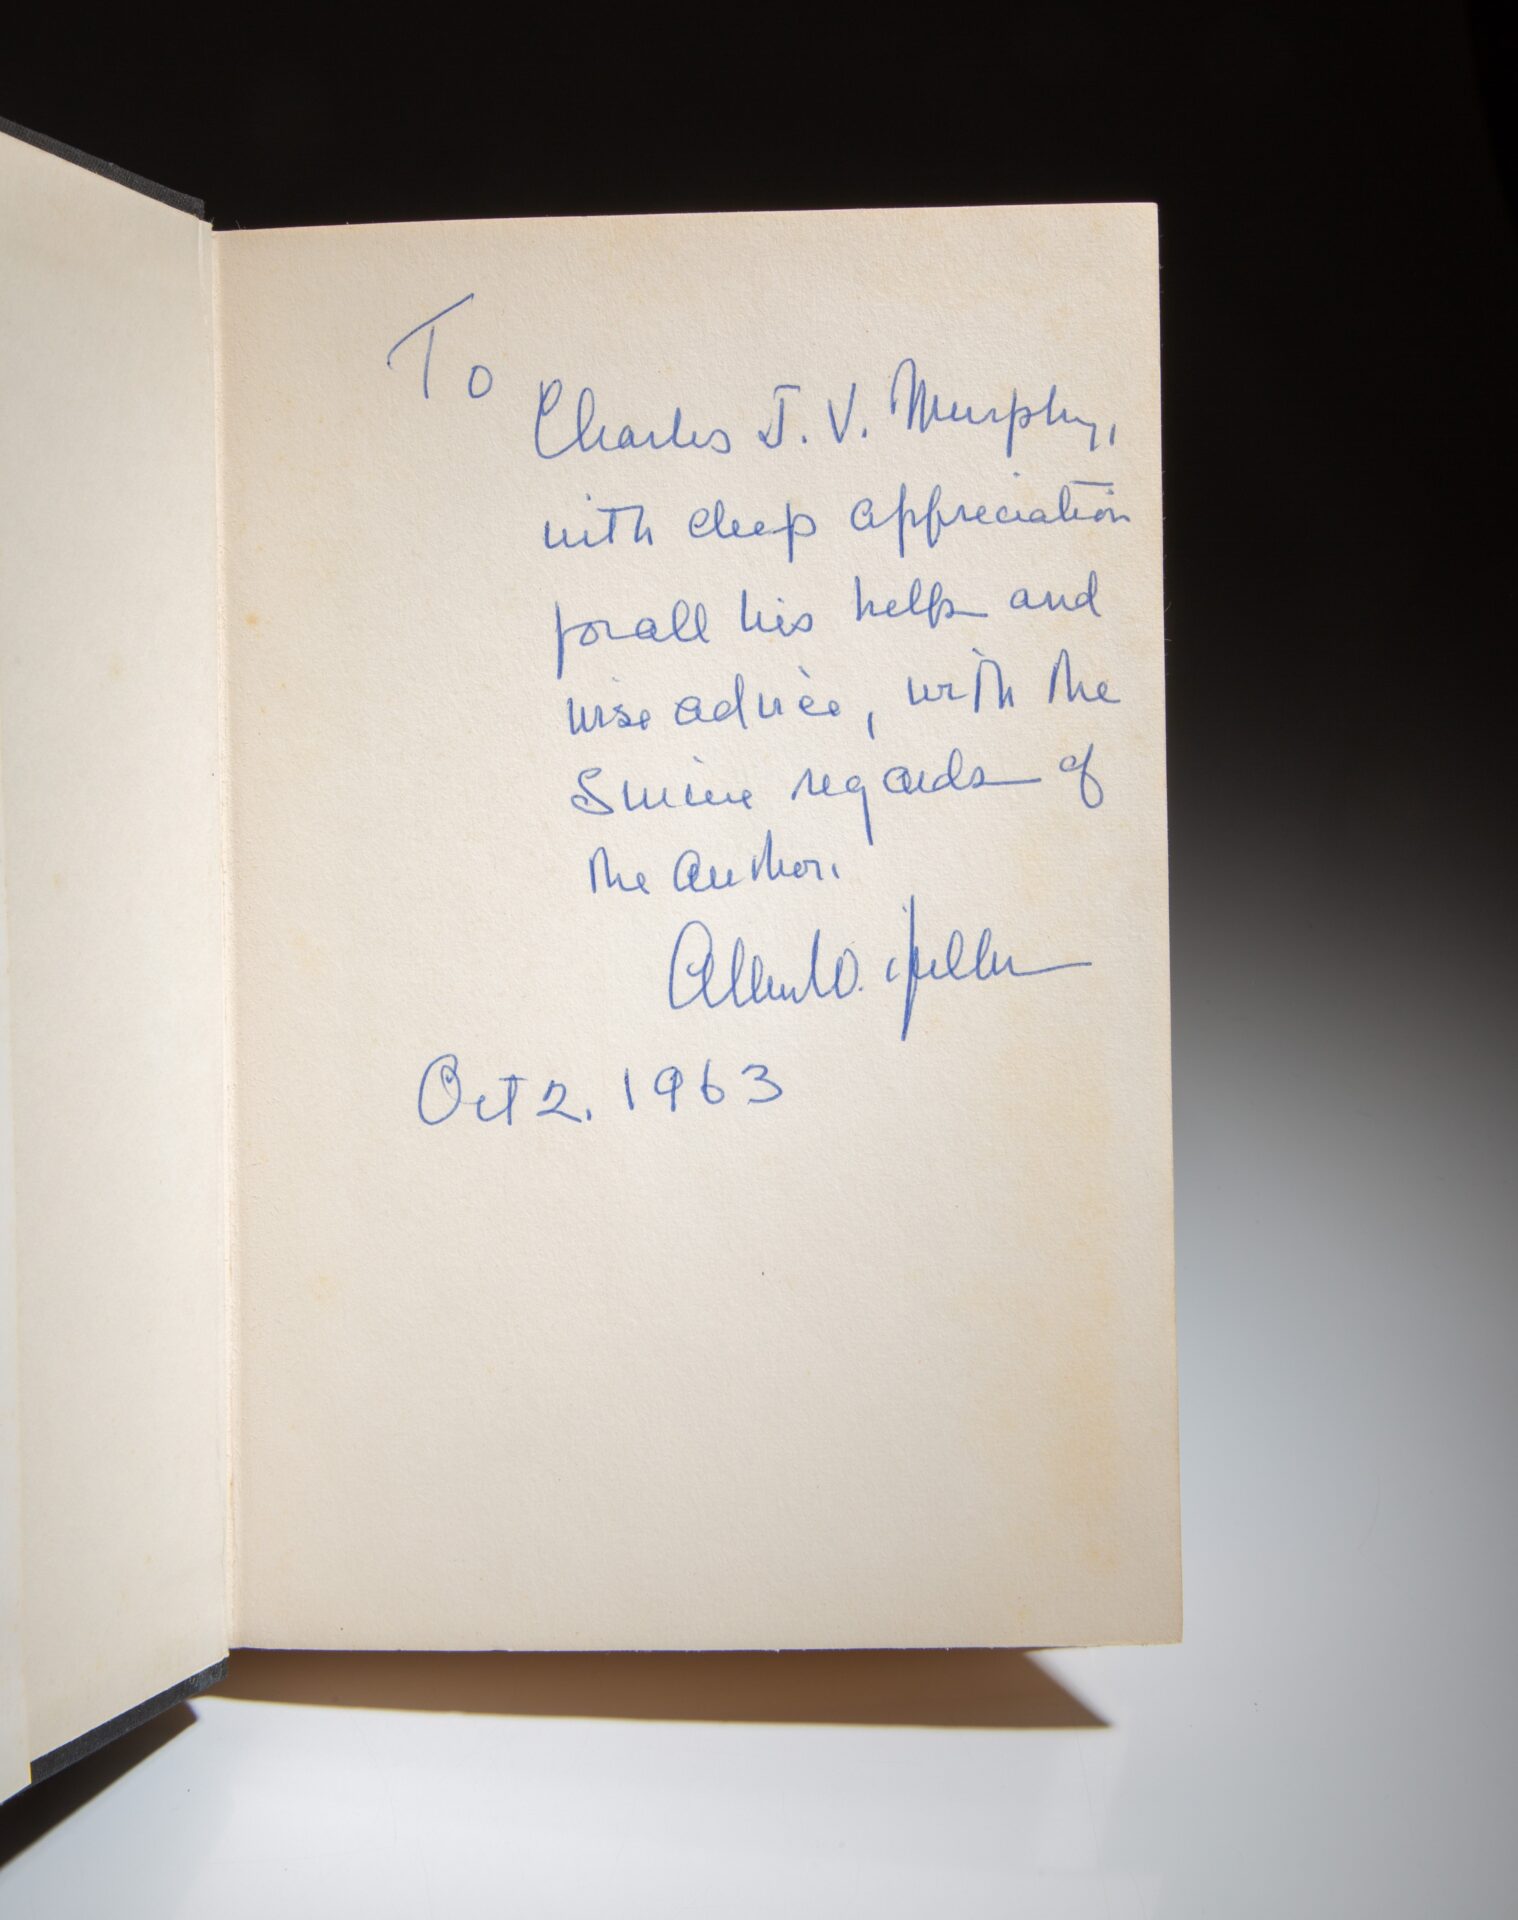 To
Charles J. V. Murphy,
with deep appreciation
for all his help and
wise advice, with the
Sincere regards of
the author.
Allen W. Dulles
Oct 2. 1963